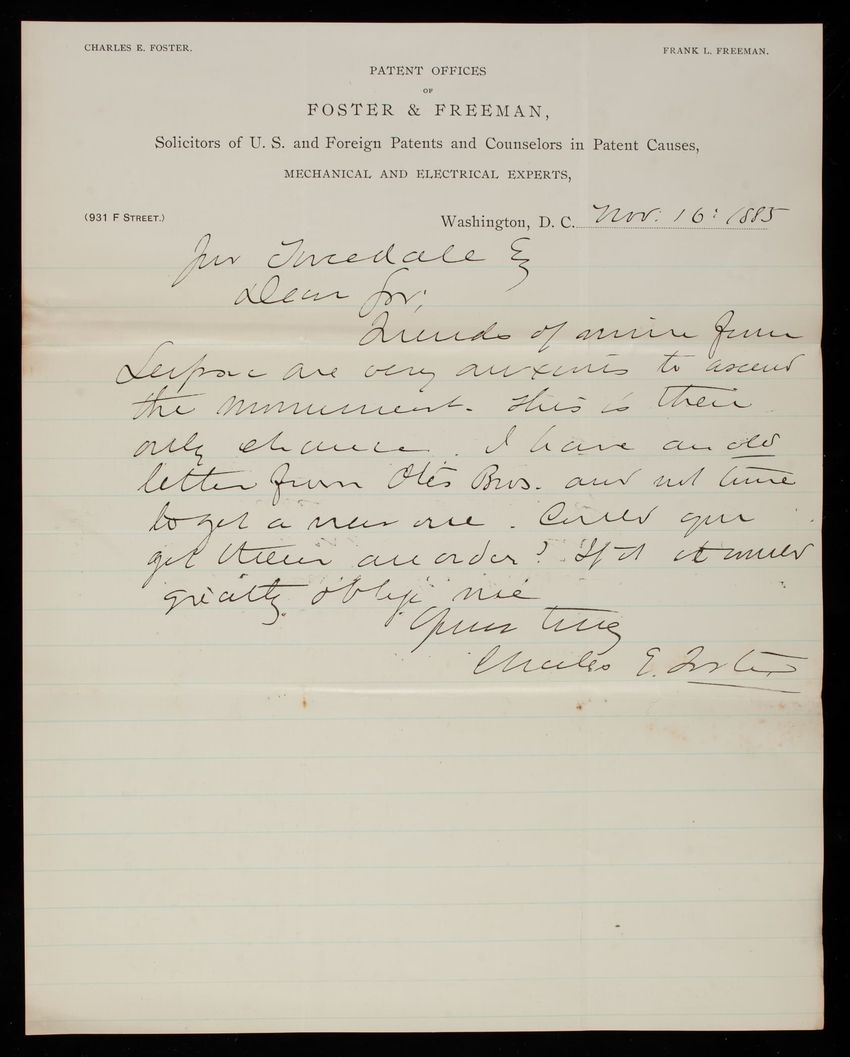 CHARLES E. FOSTER. FRANK L. FREEMAN.
PATENT OFFICES
OF
FOSTER & FREEMAN,
Solicitors of U. S. and Foreign Patents and Counselors in Patent Causes,
MECHANICAL AND ELECTRICAL EXPERTS,
(931 F STREET.) Washington, D. C. Nov. 16: 1885
Jno Tweedale Eq
Dear Sir;
Friends of mine from
Leipsic are very anxious to ascend
the monument. This is their
only chance. I have an old
letter from Otis Bros. and not time
to get a new one. Could you
get them an order? If so it would
greatly oblige me
Yours truly
Charles E. Foster